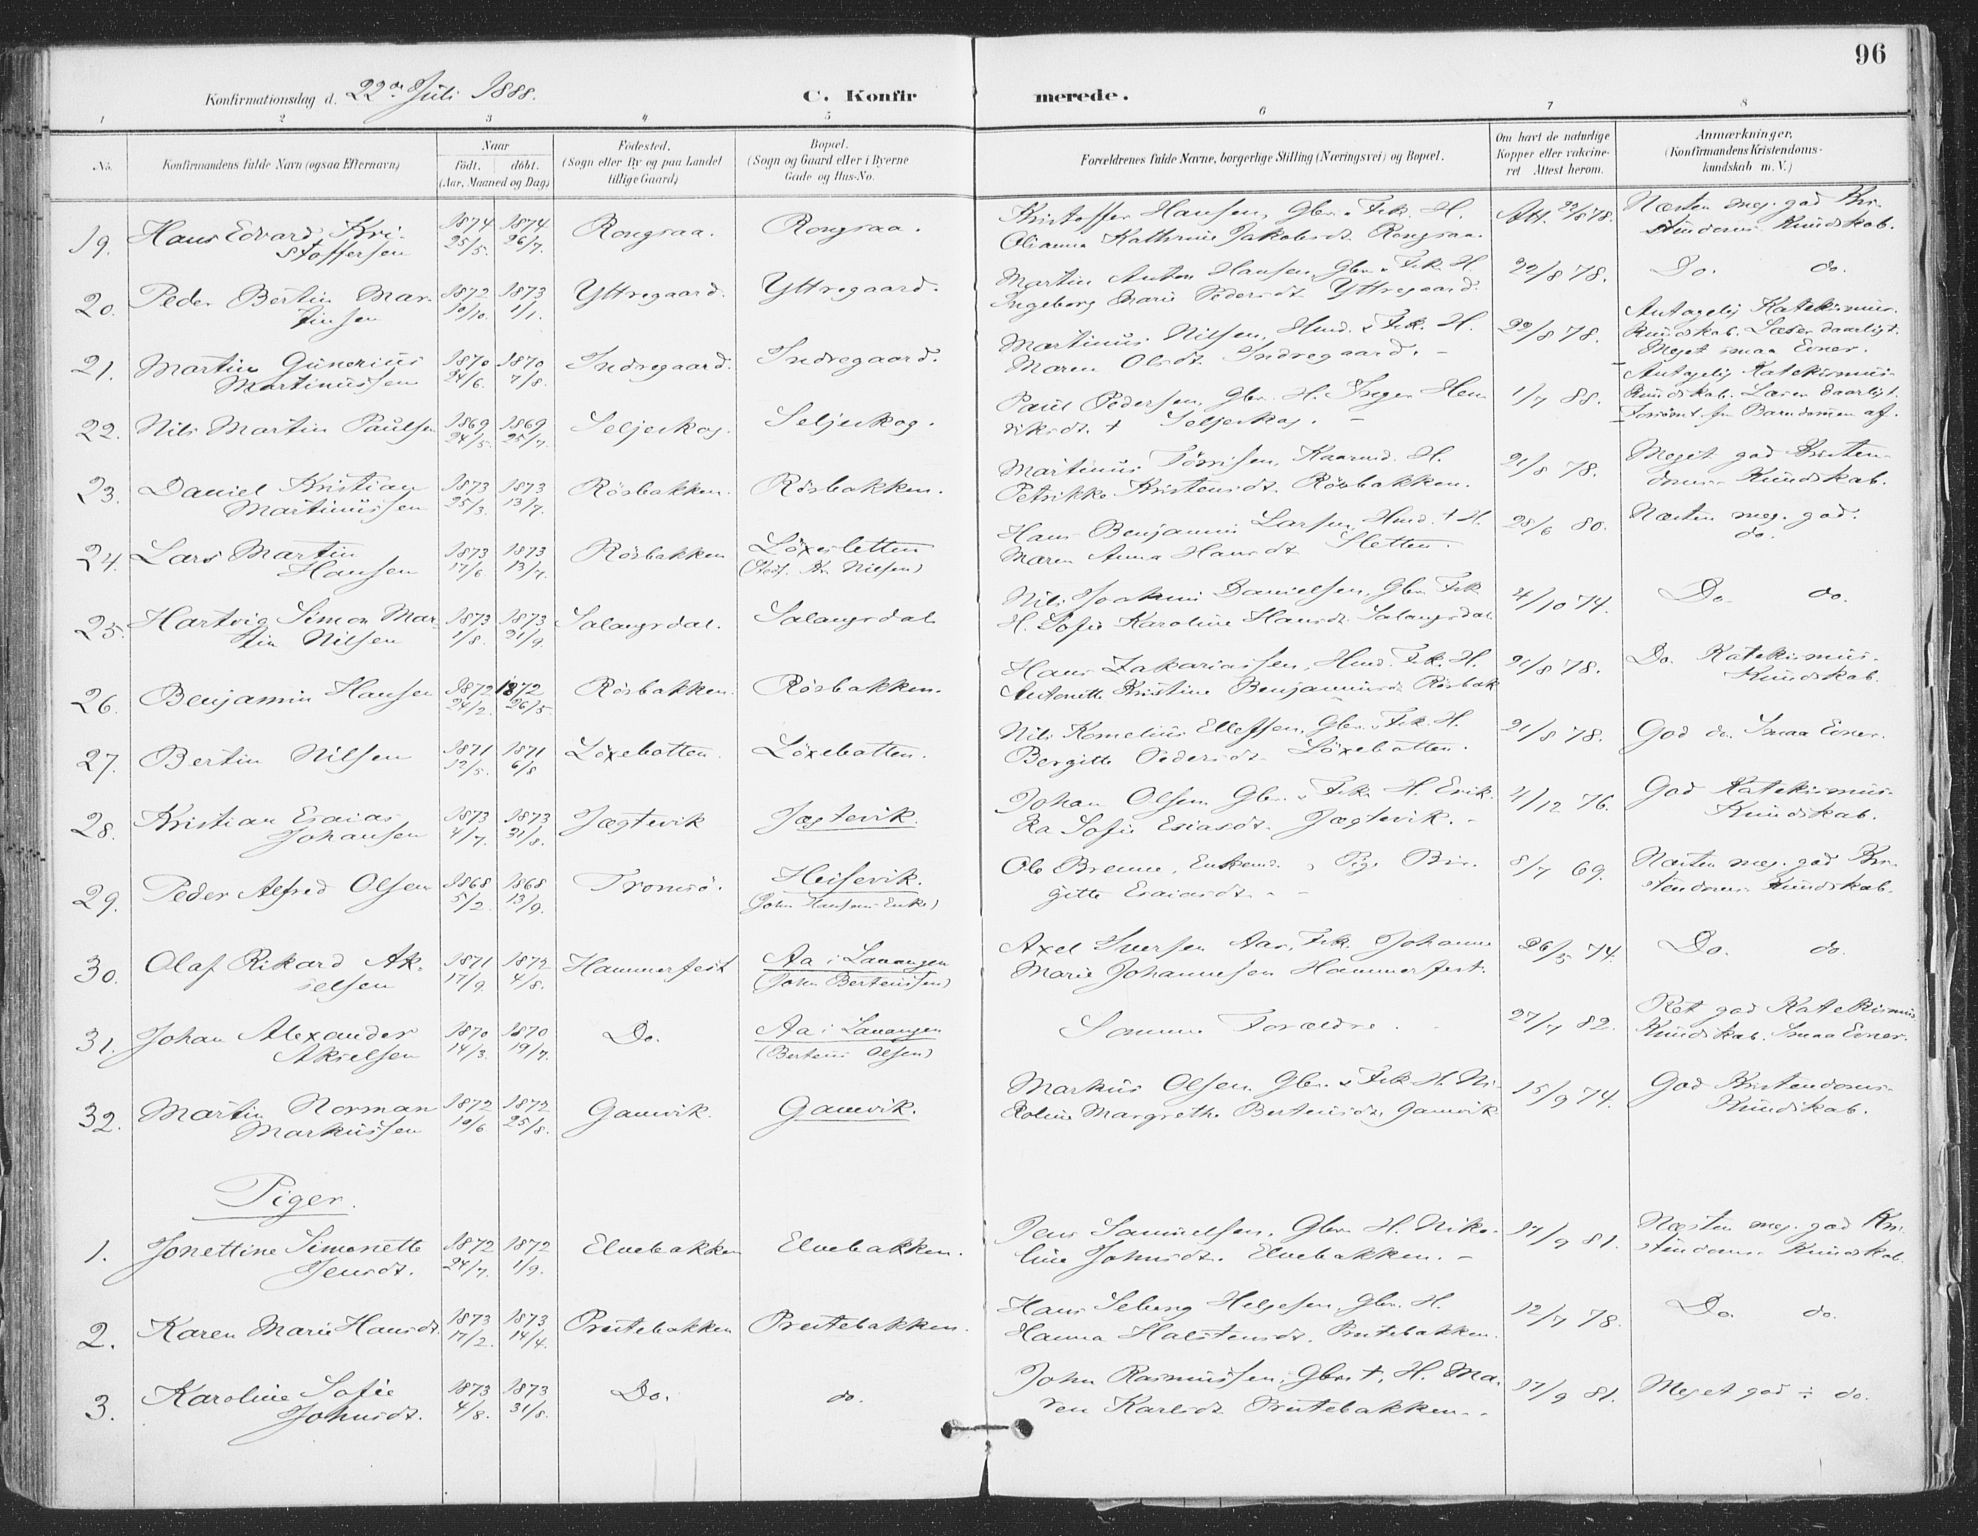 96
Konfirmationsdag d. 22de Juli 1888.
C. Konfirmerede.
1 2 3 4 5 6 7 8
No. Konfirmandens fulde Navn (ogsaa Efternavn) Naar født. døbt. (Aar, Maaned og Dag) Fødested. (Sogn eller By og paa Landet tillige Gaard) Bopæl. (Sogn og Gaard eller i Byerne Gade og Hus-No. Forældrenes fulde Navne, borgerlige Stilling (Næringsvei) og Bopæl. Om havt de naturlige Kopper eller vakcineret. Attest herom. Anmærkninger. (Konfirmandens Kristendomskundskab m. V.)
19. Hans Edvard Kristoffersen 1874 25/5. 1874 26/7. Rongraa. Rongraa. Kristoffer Hansen, Gbr. & Fisk. H. Olianna Kathrine Jakobsdt. Rongraa. Att. 22/8 78. Næsten meg. god Kristendoms Kundskab.
20. Peder Bertin Martinsen 1872 10/10. 1873 1/1. Yttregaard. Yttregaard. Martin Anton Hansen, Gbr. & Fisk. H. Ingeborg Marie Pedersdt. Yttregaard. 22/8 78. Do. do.
21. Martin Gunerius Martinussen 1870 24/6. 1870 7/8. Indregaard. Indregaard. Martinus Nilsen, Husmd. & Fisk. H. Maren Olsdt. Indregaard. 22/8 78. Antagelig Katekismus Kundskab. Læser daarligt. Meget smaa Evner.
22. Nils Martin Paulsen 1869 24/5. 1869 25/7. Seljeskog. Seljeskog. Paul Pedersen, Gbr. H. Inger Hendiksdt. + Seljeskog. 1/7 88. Antagelig Katekismus Kundskab. Læser daarligt. Forsømt fra Barndommen af.
23. Daniel Kristian Martinussen 1873 25/3. 1873 13/7. Røsbakken. Røsbakken. Martinus Tørrisen, Kaarmd. H. Petrikke Kristensdt. Røsbakken. 21/8 78. Meget god Kristendoms Kundskab.
24. Lars Martin Hansen 1873 17/6 1873 13/7. Røsbakken Løxesletten (Stedf. Kr. Nilsen) Hans Benjamin Larsen, Husmd. + H. Maren Anna Hansdt. Sletten. 28/6 80. Næsten meg. god. do.
25. Hartvig Simon Martin Nilsen 1873 1/8. 1873 21/9. Salangsdal. Salangsdal. Nils Joakim Danielsen, Gbr. Fisk. H. Sofie Karoline Hansdt. Salangsdal 4/10 74. Do. do.
26. Benjamin Hansen 1872 24/2. 1872 26/5. Røsbakken. Røsbakken. Hans Zakariassen, Husmd. Fisk. H. Antonette Kristine Benjaminsdt. Røsbak 21/8 78. Do. Katekismus Kundskab.
27. Bertin Nilsen 1871 12/5. 1871 6/8 Løxebotten. Løxebotten. Nils Kornelius Elleffsen, Gbr. & Fisk. H. Bergitte Pedersdt. Løxebotten. 21/8 78. God do. Smaa Evner.
28. Kristian Esaias Johansen 1873 4/7. 1873 31/8. Jægtevik Jægtevik. Johan Olsen Gbr. & Fisk. H. Erikka Sofie Esiasdt. Jægtevik. 4/12 76. God Katekismus Kundskab.
29. Peder Alfred Olsen 1868 5/2. 1868 13/9. Tromsø. Heisevik. (John Hansens Enke) Ole Brenne, Enkemd. & Pige Birgitte Esaiasdt. 8/7 69. Næsten meg. god Kristendoms Kundskab.
30. Olaf Rikard Akselsen 1871 17/9. 1872 4/8. Hammerfest Aa i Lavangen (John Berteussen) Axel Iversen Aar, Fisk. Johanna Marie Johannesen Hammerfest. 26/5 74. Do. do.
31. Johan Alexander Akselsen 1870 14/3. 1870 19/7. Do. Aa i Lavangen (Berteus Olsen) Samme Forældre. 27/7 82. Ret god Katekismus Kundskab. Smaa Evner.
32. Martin Norman Markussen 1872 10/6 1872 25/8. Gamvik. Gamvik. Markus Olsen Gbr. & Fisk H. Nikoline Margrethe Berteusdt. Gamvik 15/9 74. God Kristendoms Kundskab.
Piger.
1. Jonettine Simonette Jensdt. 1872 24/7. 1872 1/9. Elvebakken Elvebakken. Jens Samuelsen, Gbr. H. Nikoline Johnsdt. Elvebakken. 17/9 81. Næsten meg. god Kristendoms Kundskab
2. Karen Marie Hansdt. 1873 17/2. 1873 14/4. Prestebakken Prestebakken. Hans Seberg Helgesen, Gbr. H. Hanna Halstensdt. Prestebakken. 12/7 78. Do. do.
3. Karoline Sofie Johnsdt. 1873 4/8. 1873 31/8. Do. do. John Rasmussen, Gbr. +, H. Maren Karlsdt. Prestebakken. 17/9 81. Meget god ÷ do.